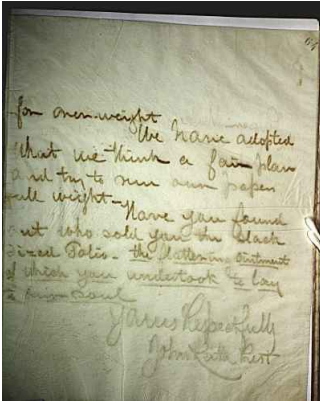 for over-weight
We have adopted
what we think a fair plan
and try to run our paper
full weight-
Have you found
out who sold you the black
sized Folio- the flattening ointment
of which you undertook to lay
soul
Yours Respectfully
John Keith